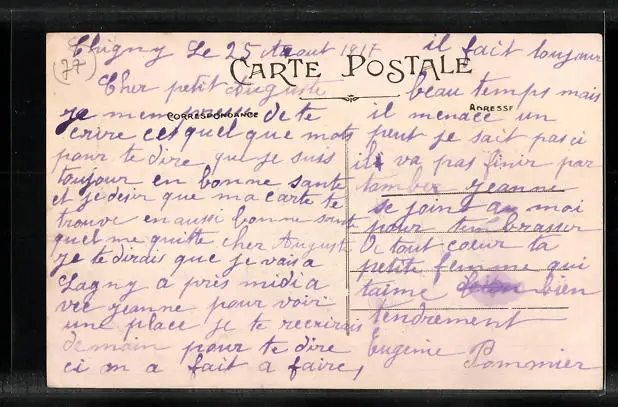 Chigny Le 25 Aout 1917
(77)
CARTE POSTALE
Cher petit Auguste
CORRESPONDANCE
je de te
ecrire ces quel que mots
pour te dire que je suis
toujour en bonne sante
et je desir que ma carte te
trouve en aussi bonne sante
quel me quitte cher Auguste
je te dirais que je vais a
Lagny a près midi a
vec jeanne pour voir
une place je te recrirais
demain pour te dire
ci on a fait a faire,
il fait toujour
beau temps mais
ADRESSE
il menace un
peut je sait pas ci
il va pas finir par
tomber jeanne
se joint a moi
pour tembrasser
de tout coeur ta
petite femme qui
taime bien
tendrement
Eugenie Pommier